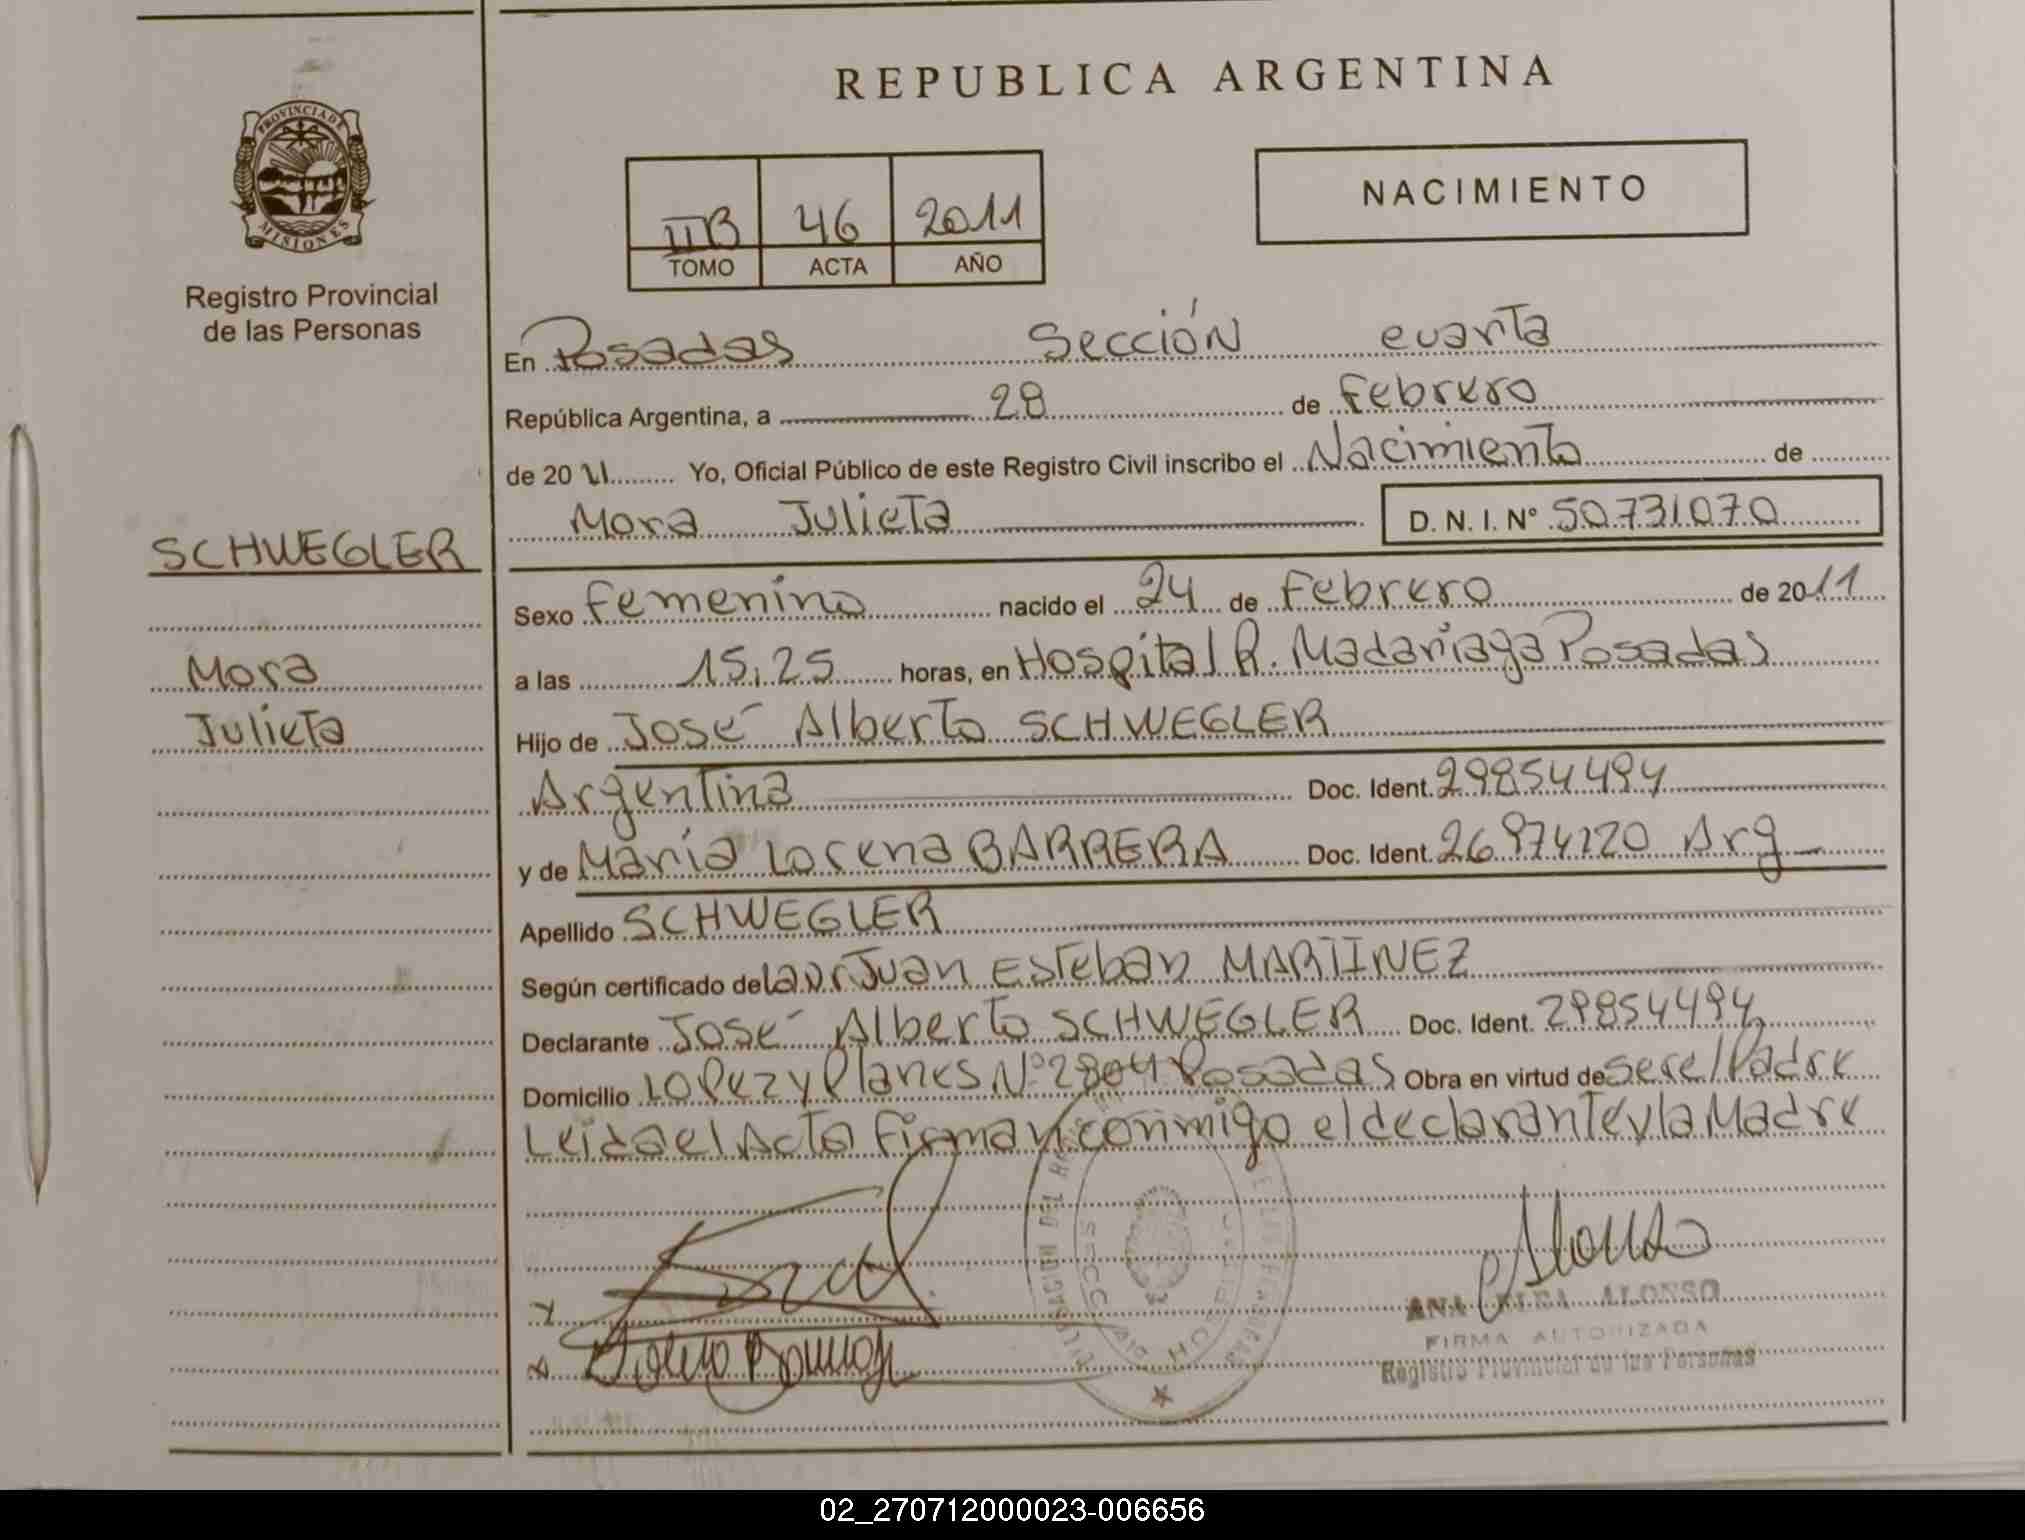 REPUBLICA ARGENTINA
PROVINCIA DE
MISIONES
Registro Provincial
de las Personas
IIB 46 2011
TOMO ACTA AÑO
NACIMIENTO
En Posadas Sección cuarta
República Argentina, a 28 de Febrero
de 2011 Yo, Oficial Público de este Registro Civil inscribo el Nacimiento de
Mora Julieta D. N. I. Nº 50.731.070
SCHWEGLER
Mora
Julieta
Sexo femenino nacido el 24 de Febrero de 2011
a las 15,25 horas, en Hospital R. Madariaga Posadas
Hijo de José Alberto SCHWEGLER
Argentina Doc. Ident. 29854494
y de María Lorena BARRERA Doc. Ident. 26974120 Arg
Apellido SCHWEGLER
Según certificado de Juan Esteban MARTINEZ
Declarante José Alberto SCHWEGLER Doc. Ident. 29854494
Domicilio Lopez y Planes Nº 2804 Posadas Obra en virtud de ser el Padre
Leida el Acta Firman conmigo el declarante y la Madre
Alonso
ANA ALONSO
FIRMA AUTORIZADA
Registro Provincial de las Personas
02_270712000023-006656